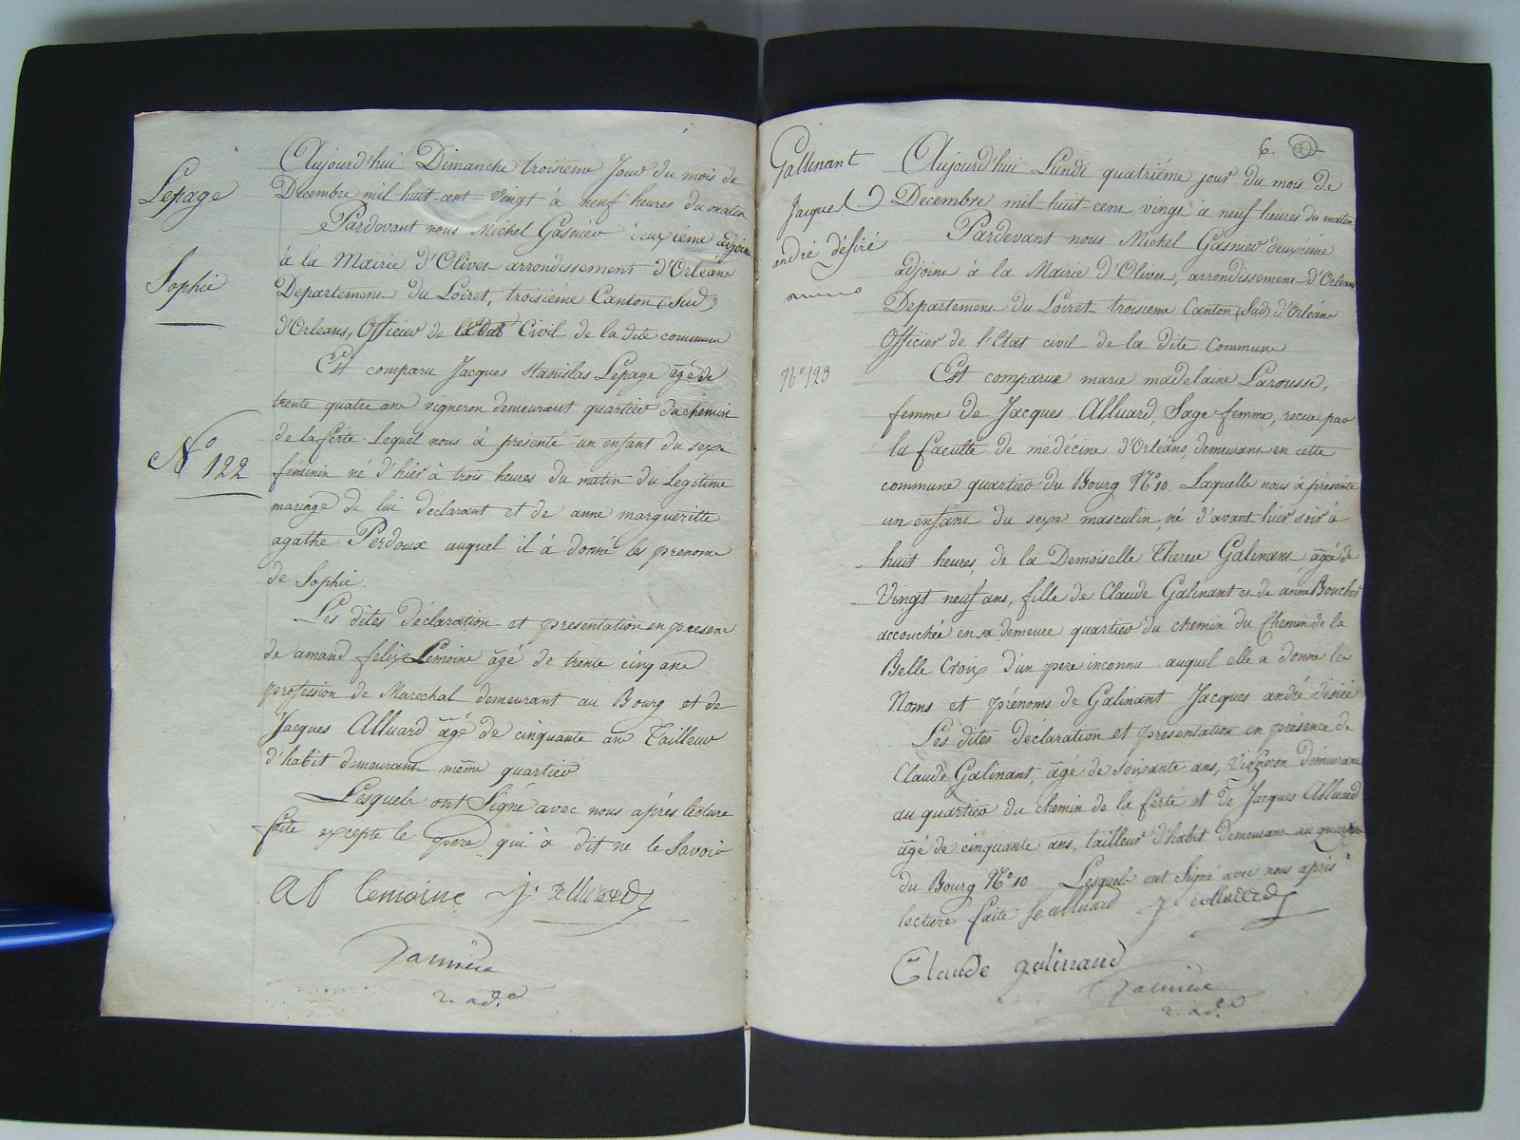 Lepage
Sophie
N° 122
Aujourd'hui Dimanche troisieme Jour du mois de
Decembre mil huit-cent-vingt à neuf heures du matin
Pardevant nous Michel Gasnier deuxième adjoint
à la Mairie d'Olivet arrondissement d'Orléans
Departement du Loiret, troisième Canton (Sud)
d'Orleans, Officier de l'état Civil de la dite commune
Est comparu Jacques Stanislas Lepage âgé de
trente quatre ans vigneron demeurant quartier du chemin
de la ferté lequel nous à presenté un enfant du sexe
feminin né d'hier à trois heures du matin du Legitime
mariage de lui déclarant et de anne margueritte
agathe Perdoux auquel il à donné les prenoms
de Sophie.
Les dites déclaration et presentation en presence
de amand felix Lemoine âgé de trente cinq ans
profession de Marechal demeurant au Bourg et de
Jacques Alluard âgé de cinquante ans Tailleur
d'habit demeurant même quartier
Lesquels ont Signé avec nous après lecture
faite excepté le pere qui à dit ne le Savoir
af lemoine j. alluard
2. adj.
Gallinant
Jacques
andré désiré
N° 123
6.
Aujourd'hui Lundi quatriéme jour du mois de
Decembre mil-huit-cent vingt à neuf heures du matin
Pardevant nous Michel Gasnier deuxieme
adjoint à la Mairie d'Olivet, arrondissement d'Orleans
Departement du Loiret troisieme Canton (Sud) d'Orléans
Officier de l'Etat civil de la dite Commune
Est comparue marie madelaine Larousse,
femme de Jacques Alluard, Sage-femme, recue par
la faculté de médécine d'Orleans, demeurant en cette
commune quartier du Bourg N° 10. Laquelle nous à présenté
un enfant du sexe masculin, né d'avant hier soir à
huit heures, de la Demoiselle Therese Galinant âgée de
Vingt neuf ans, fille de Claude Galinant et de anne Bouchet
accouchée en sa demeure quartier du chemin du Chemin de la
Belle Croix d'un pere inconnu auquel elle a donné les
Noms et prénoms de Galinant Jacques andré désiré
Les dites déclaration et présentation en présence de
Claude Galinant, âgé de Soixante ans, Vigneron demeurant
au quartier du chemin de la ferté et de Jacques Alluard
âgé de cinquante ans, tailleur d'habit demeurant au quartier
du Bourg N° 10 Lesquels ont Signé avec nous après
lecture faite fe alluard j. alluard
Claude galinand
2. adj.